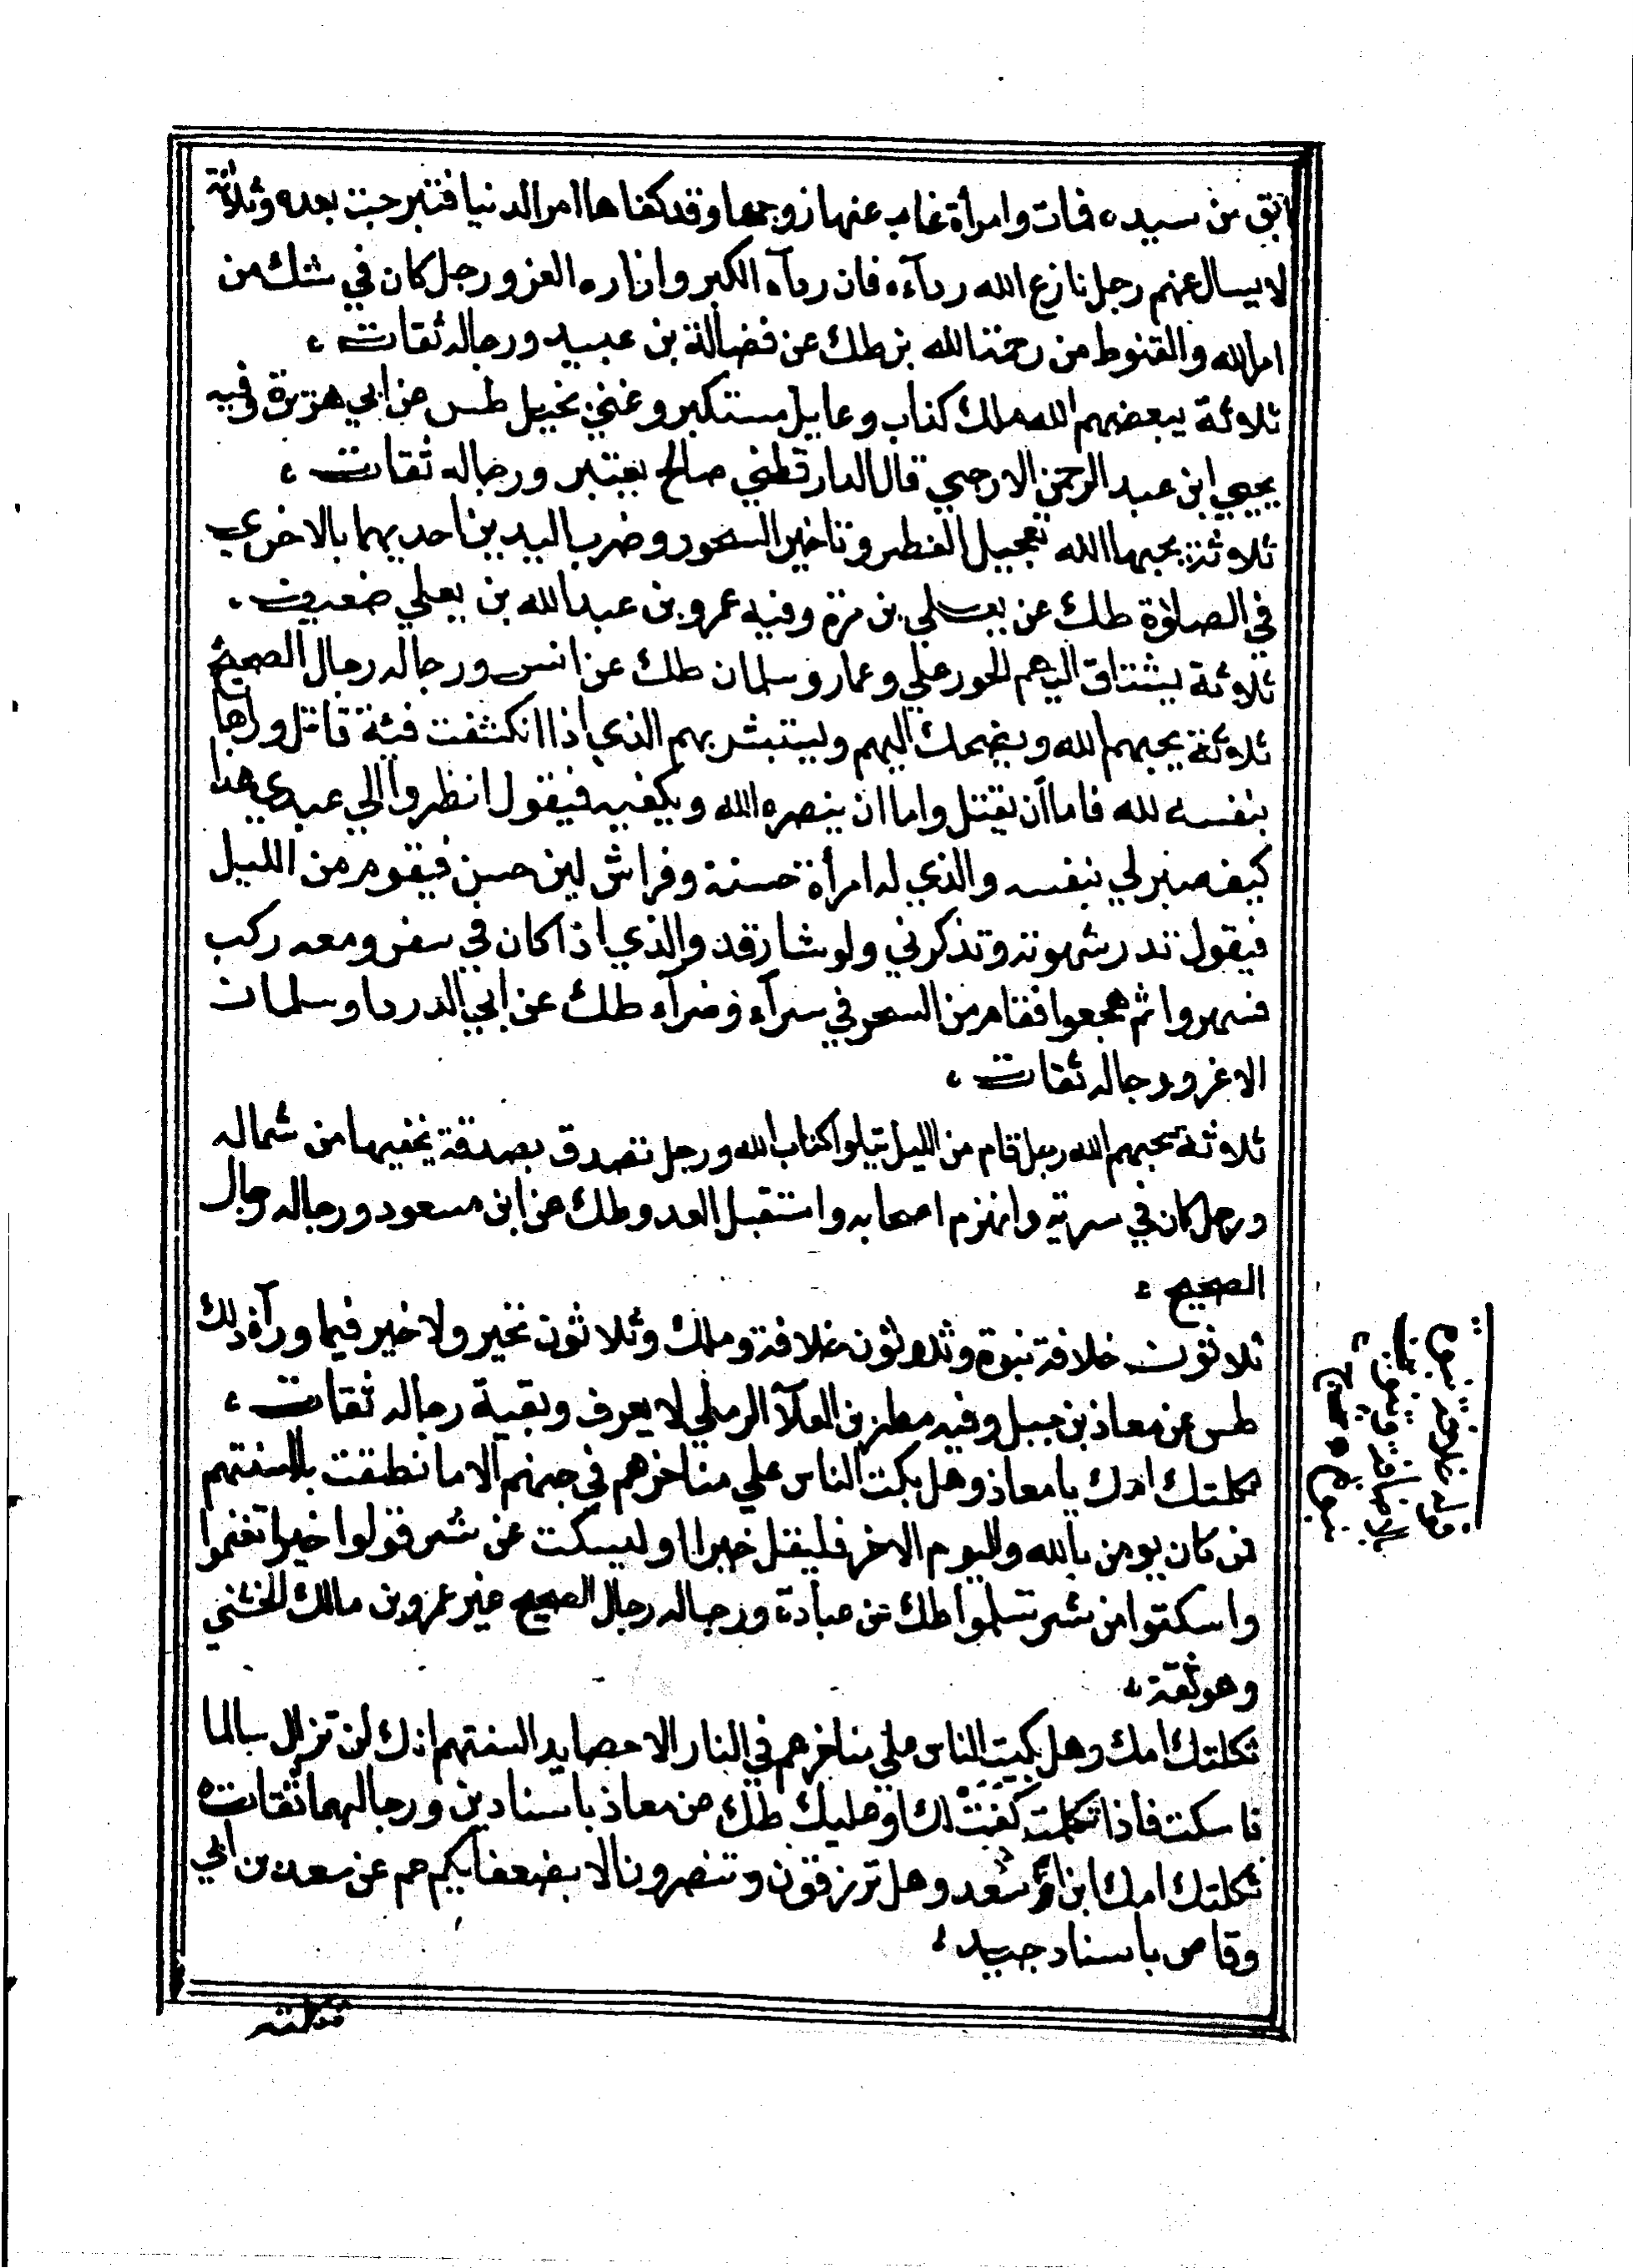 ابق من سيده فمات وامرأة غاب عنها زوجها وقد كفاها امر الدنيا فتبرجت بعده وثلاثة
لا يسال عنهم رجل نازع الله رداءه فان رداه الكبر وازاره العز ورجل كان في شك من
امر الله والقنوط من رحمة الله بز طك عن فضالة بن عبيد ورجاله ثقات ،
ثلاثة يبغضهم الله ملك كذاب وعايل مستكبر وغني بخيل طس عن ابي هريرة وفيه
يحيى ابن عبد الرحمن الارحبي قال الدارقطني صالح يعتبر ورجاله ثقات ،
ثلاثة يحبها الله تعجيل الفطر وتاخير السحور وضرب اليدين احديهما بالاخرى
في الصلاة طك عن يعلي بن مرة وفيه عمرو بن عبد الله بن يعلي ضعيف .
ثلاثة يشتاق اليهم الحور علي وعمار وسلمان طك عن انس ورجاله رجال الصحيح
ثلاثة يحبهم الله ويضحك اليهم ويستبشر بهم الذي اذا انكشفت فئة قاتل وراها
بنفسه لله فاما ان يقتل واما ان ينصره الله ويكفيه فيقول انظروا الي عبدي هذا
كيف صبر لي بنفسه والذي له امرأة حسنة وفراش لين حسن فيقوم من الليل
فيقول تدر شهوته وتذكرني ولو شا رقد والذي اذا كان في سفر ومعه ركب
فسهروا ثم هجعوا فقام من السحر في سرآء وضرآء طك عن ابي الدردا وسلمان
الاغر ورجاله ثقات ،
ثلاثة يحبهم الله رجل قام من الليل يتلوا كتاب الله ورجل تصدق بصدقة يخفيها من شماله
ورجل كان في سرية وانهزم اصحابه واستقبل العدو طك عن ابن مسعود ورجاله رجال
الصحيح ،
ثلاثون خلافة نبوة وثلاثون خلافة وملك وثلاثون تخير ولا خير فيما ورآء ذلك
طس عن معاذ بن جبل وفيه مطر بن العلآ الرملي لا يعرف وبقية رجاله ثقات ،
ثكلتك امك يا معاذ وهل يكب الناس علي مناخرهم في جهنم الا ما نطقت به السنتهم
فمن كان يومن بالله واليوم الاخر فليقل خيرا او ليسكت عن شر قولوا خيرا تغنموا
واسكتوا من شر تسلموا طك عن عبادة ورجاله رجال الصحيح غير عمرو بن مالك الخشني
وهو ثقة ،
ثكلتك امك وهل يكب الناس علي مناخرهم في النار الا حصايد السنتهم انك لن تزال سالما
ما سكت فاذا تكلمت كتب لك او عليك طك عن معاذ باسنادين ورجالهما ثقات
ثكلتك امك ابن ام سعد وهل ترزقون وتنصرون الا بضعفايكم حم عن سعد بن ابي
وقاص باسناد جيد ،
ثكلته